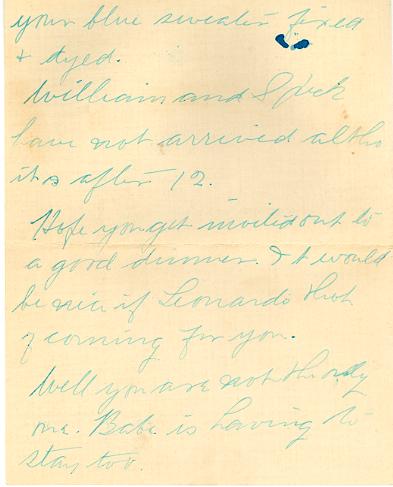 your blue sweater fixed
& dyed.
William and
have not arrived altho
its after 12.
Hope you get invited out to
a good dinner. It would
be nice if Leonardo thot
of coming for you.
Well you are not the only
one. Babe is having to
stay too.